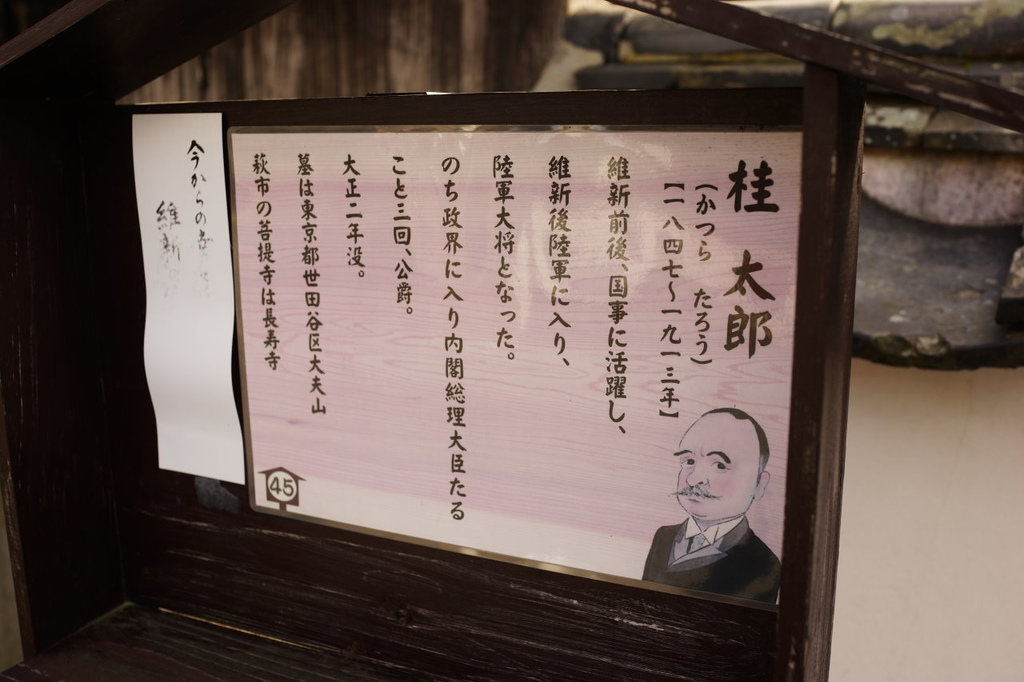 桂 太郎
(かつら たろう)
【一八四七～一九一三年】
維新前後、国事に活躍し、
維新後陸軍に入り、
陸軍大将となった。
のち政界に入り内閣総理大臣たる
こと三回、公爵。
大正二年没。
墓は東京都世田谷区大夫山
萩市の菩提寺は長寿寺
45
今からの
維新